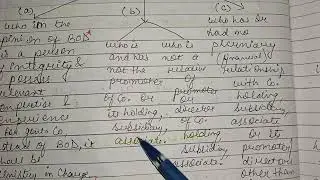 (a) (b) (c)
who in the who has or
opinion of BOD had no
is a person who is who is pecuniary
of integrity & and has not a (financial)
possess not the relative relationship
relevant promoter of with Co.
of Co. or promoter holding,
experience its holding, associate
for govts Co. subsidiary, of Co. holding or its
instead of BOD, it associate. subsidiary promoter,
shall be associate. director
Ministry in Charge other than